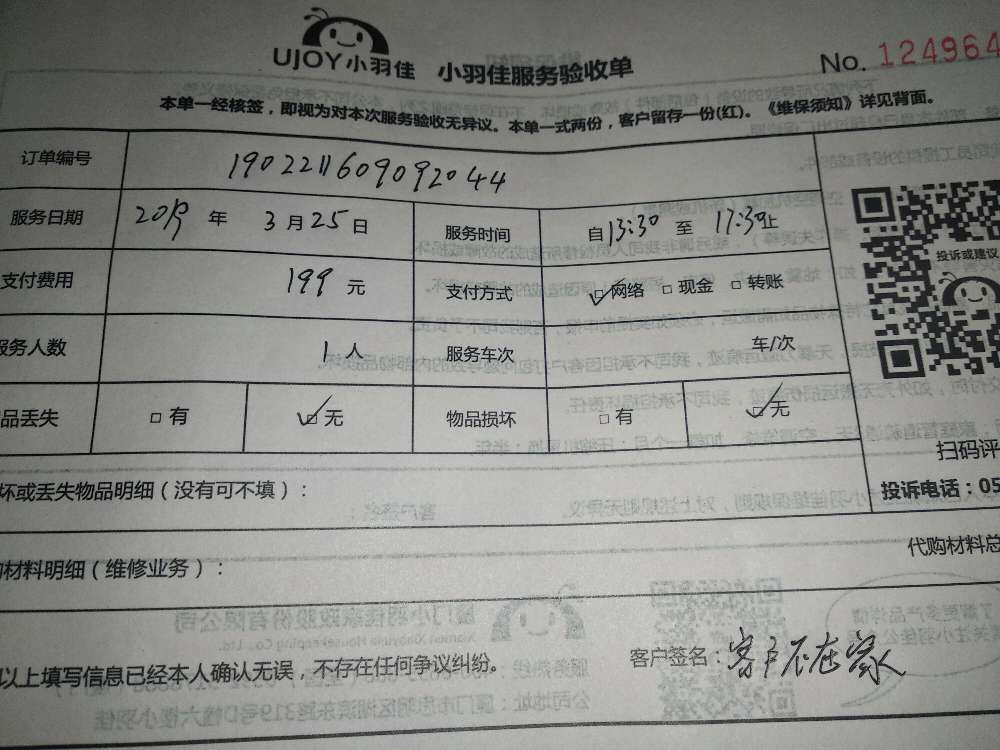 UJOY小羽佳 小羽佳服务验收单 No. 124964
本单一经核签，即视为对本次服务验收无异议。本单一式两份，客户留存一份(红)。《维保须知》详见背面。
订单编号 1902211609092044
服务日期 2019 年 3 月 25 日 服务时间 自 13:30 至 17:30 止
支付费用 199 元 支付方式 网络 现金 转账
服务人数 1 人 服务车次 车/次
品丢失 有 无 物品损坏 有 无
投诉或建议
扫码评
投诉电话：05
坏或丢失物品明细（没有可不填）：
代购材料总
购材料明细（维修业务）：
以上填写信息已经本人确认无误，不存在任何争议纠纷。 客户签名：客户不在家